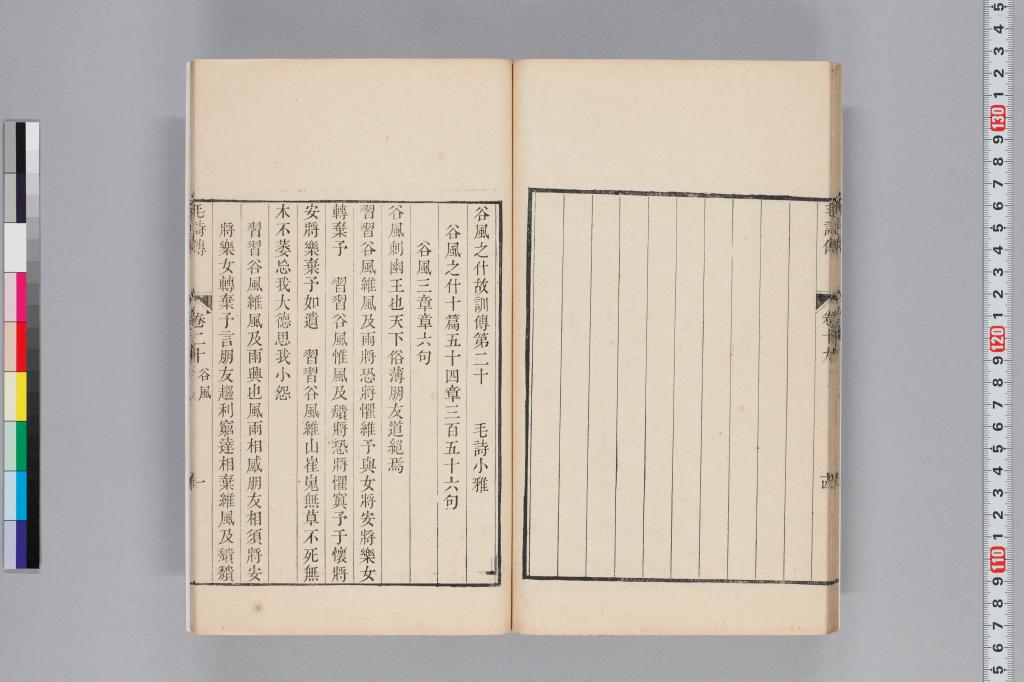 毛詩傳
卷十九
谷風之什故訓傳第二十　　毛詩小雅
谷風之什十篇五十四章三百五十六句
谷風三章章六句
谷風刺幽王也天下俗薄朋友道絕焉
習習谷風維風及雨將恐將懼維予與女將安將樂女
轉棄予　習習谷風惟風及穨將恐將懼寘予于懷將
安將樂棄予如遺　習習谷風維山崔嵬無草不死無
木不萎忘我大德思我小怨
習習谷風維風及雨興也風雨相感朋友相須將安
將樂女轉棄予言朋友趨利窮達相棄維風及穨穨
毛詩傳
卷二十
谷風
一
5 4 3 2 1 130 9 8 7 6 5 4 3 2 1 120 9 8 7 6 5 4 3 2 1 110 9 8 7 6 5